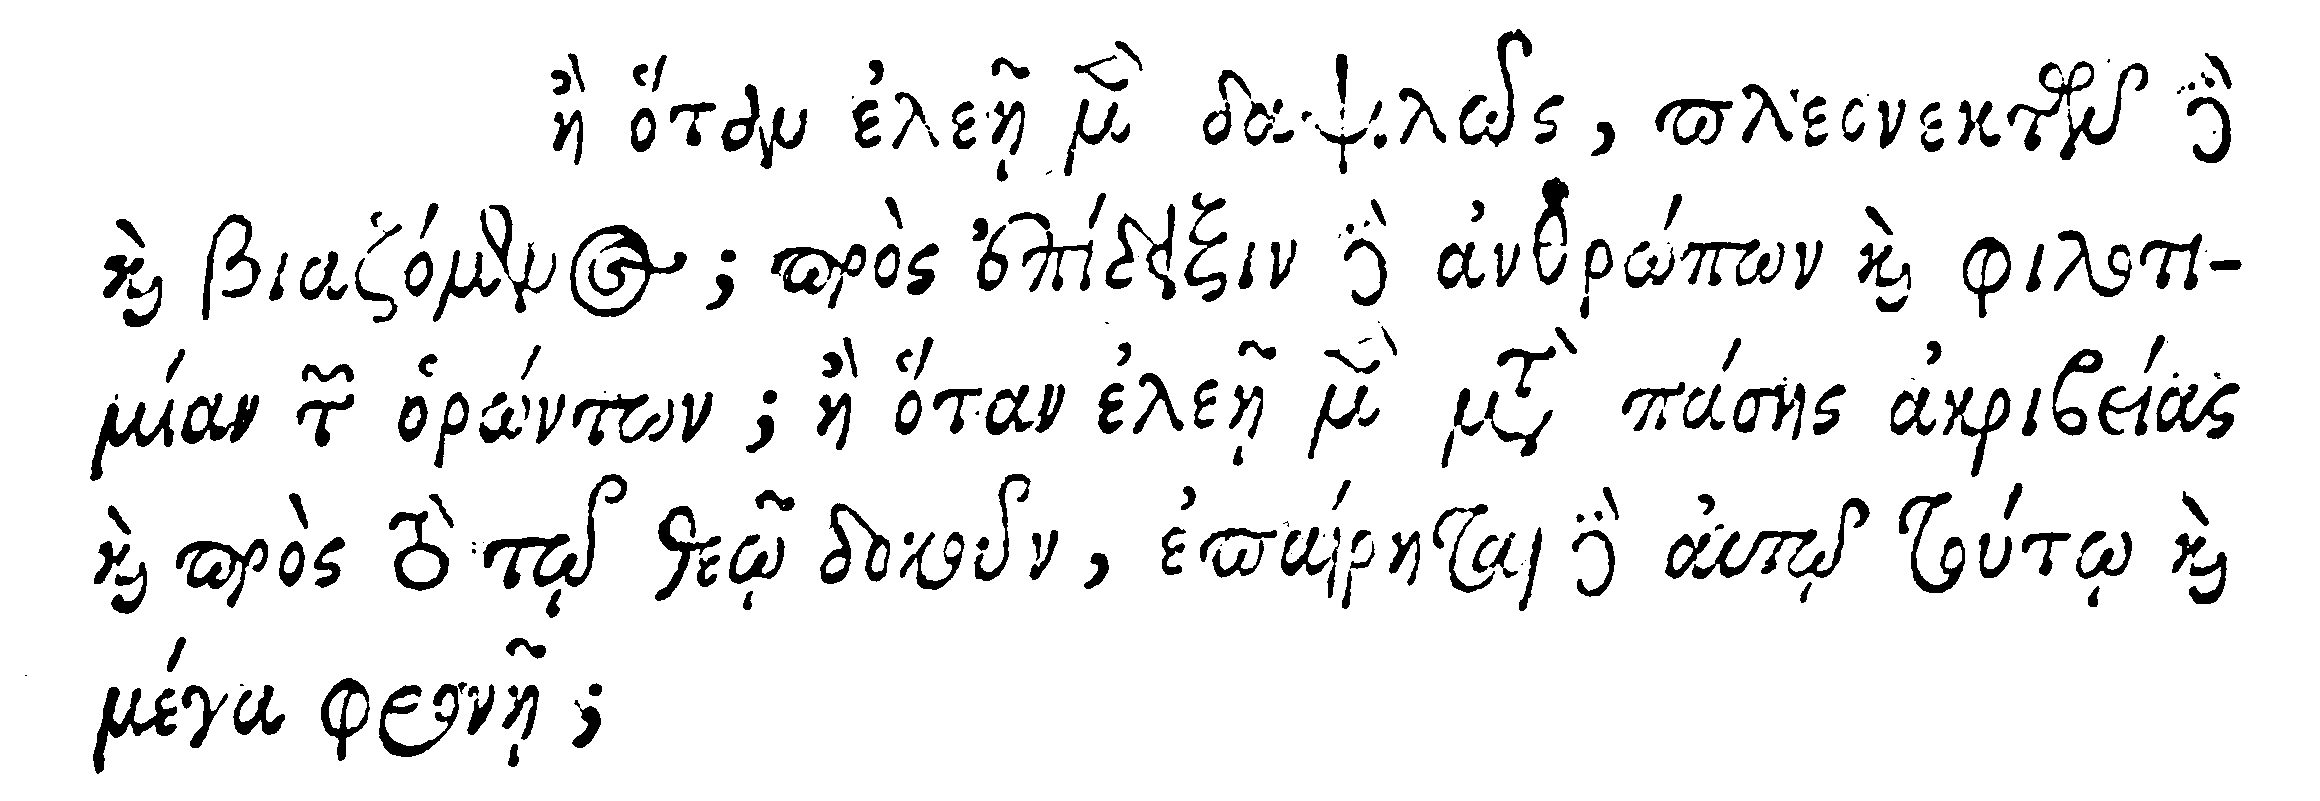 ἢ ὅταν ἐλεῇ μὲν δαψιλῶς, πλεονεκτῶν δὲ
καὶ βιαζόμενος; πρὸς ἐπίδειξιν δὲ ἀνθρώπων καὶ φιλοτι-
μίαν τῶν ὁρώντων; ἢ ὅταν ἐλεῇ μὲν μετὰ πάσης ἀκριβείας
καὶ πρὸς τὸ τῷ θεῷ δοκοῦν, ἐπαίρηται δὲ αὐτῷ τούτῳ καὶ
μέγα φρονῇ;